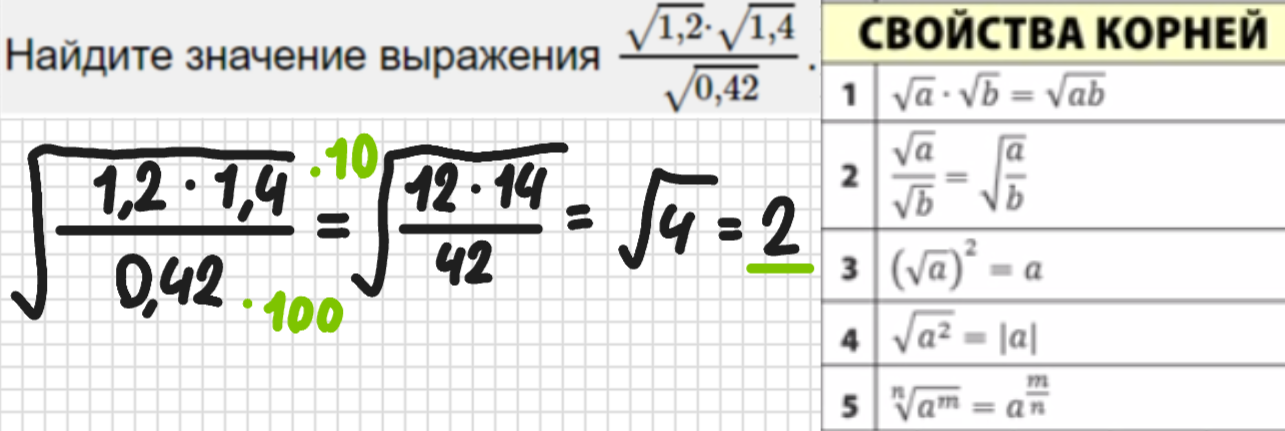 Найдите значение выражения √1,2·√1,4 / √0,42.
√(1,2 · 1,4 / 0,42) = √(12 · 14 / 42) = √4 = 2
·10
·100
СВОЙСТВА КОРНЕЙ
1 √a · √b = √ab
2 √a / √b = √(a / b)
3 (√a)² = a
4 √a² = |a|
5 ⁿ√aᵐ = a^(m/n)